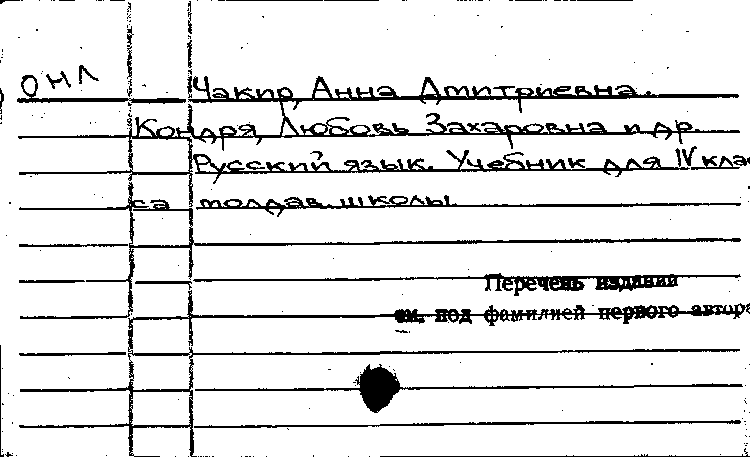 ОНЛ
Чакир, Анна Дмитриевна.
Кондря, Любовь Захаровна и др.
Русский язык. Учебник для IV клас
са молдав. школы.
Перечень изданий
см. под фамилией первого автора